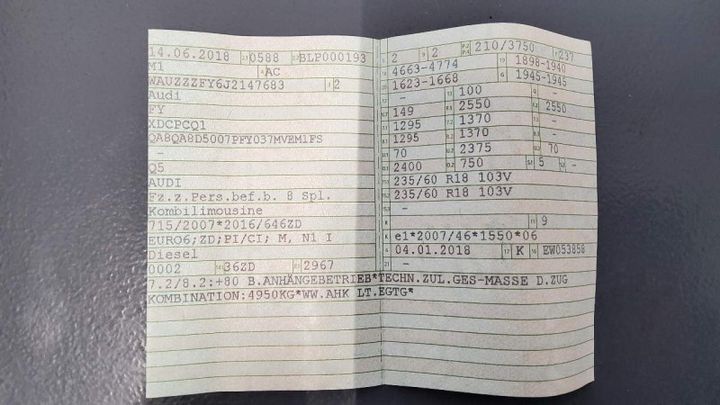 14.06.2018 0588 BLP000193
M1 AC
WAUZZZFY6J2147683 2
Audi
FY
XDCPCQ1
QA8QA8D5007PFY037MVEM1FS
-
Q5
AUDI
Fz.z.Pers.bef.b. 8 Spl.
Kombilimousine
715/2007*2016/646ZD
EURO6;ZD;PI/CI; M, N1 I
Diesel
0002 36ZD 2967
2 2 210/3750 237
4663-4774 1898-1940
1623-1668 1945-1945
- 100 -
149 2550 2550
1295 1370 -
1295 1370 -
70 2375 70
2400 750 5 -
235/60 R18 103V
235/60 R18 103V
-
9
e1*2007/46*1550*06
04.01.2018 K EW053858
-
7.2/8.2:+80 B.ANHÄNGEBETRIEB*TECHN.ZUL.GES-MASSE D.ZUG
KOMBINATION:4950KG*WW.AHK LT.EGTG*